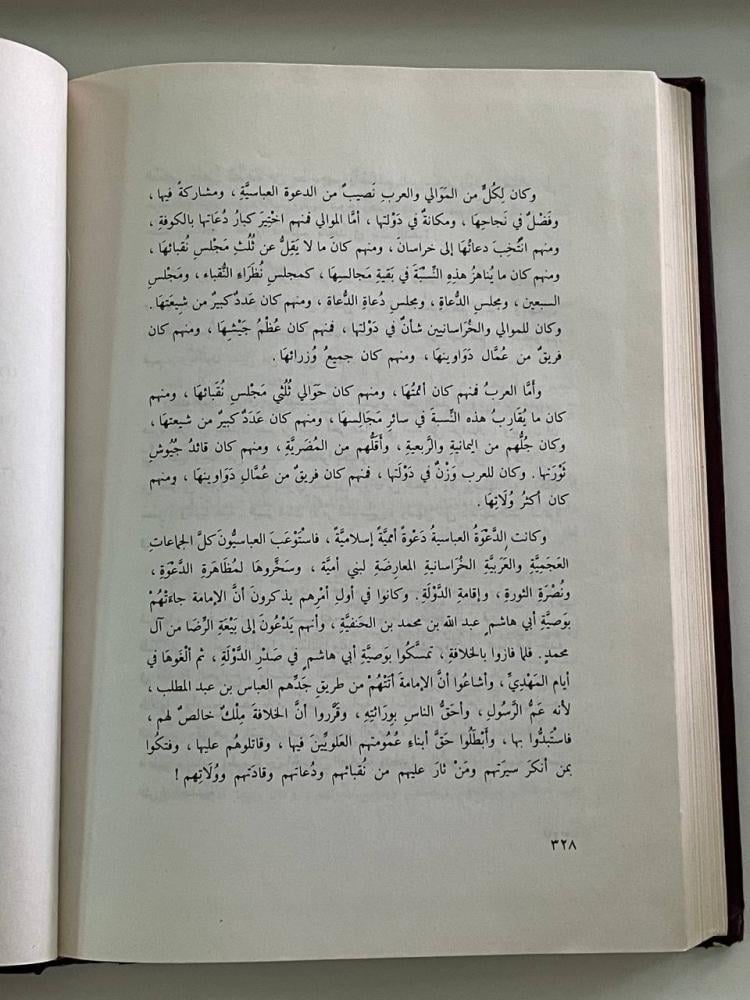 وكان لِكُلٍّ من المَوَالي والعربِ نَصيبٌ من الدعوة العباسيَّةِ ، ومشاركةٌ فيها ،
وفَضْلٌ في نَجاحِهَا ، ومكانةٌ في دَوْلتها ، أمَّا الموالي فمنهم اخْتِيرَ كبارُ دُعَاتِها بالكوفةِ ،
ومنهم انْتُخِبَ دعاتُهَا إلى خراسانَ ، ومنهم كانَ ما لا يَقِلُّ عن ثُلُثِ مَجْلسِ نُقبائهَا ،
ومنهم كان ما يُناهزُ هذِهِ النِّسْبَةَ في بَقيةِ مَجالسِهَا ، كمجلسِ نُظَرَاءِ النُّقباء ، ومَجْلسِ
السبعين ، ومجلسِ الدُّعاةِ ، ومجلسِ دُعاةِ الدُّعاة ، ومنهم كان عَددٌ كبيرٌ من شِيعَتهَا .
وكان للموالي والخُرَاسانيين شأنٌ في دَوْلتها ، فمنهم كان عُظْمُ جَيْشِهَا ، ومنهم كان
فريقٌ من عُمَّال دَوَاوينهَا ، ومنهم كان جميعُ وُزرائهَا .
وأَمَّا العربُ فمنهم كان أئمتُهَا ، ومنهم كان حَوَالي ثُلُثي مَجْلس نُقَبائهَا ، ومنهم
كان ما يُقَارِبُ هذه النِّسبةَ في سائرِ مَجَالِسهَا ، ومنهم كان عَدَدٌ كبيرٌ من شيعتهَا ،
وكان جُلُّهم من اليمانية والرَّبعيةِ ، وأَقَلُّهم من المُضَريَّةِ ، ومنهم كان قائدُ جُيُوشِ
ثَوْرَتها . وكان للعرب وَزْنٌ في دَوْلَتها ، فمنهم كان فريقٌ من عُمَّالِ دَوَاوينهَا ، ومنهم
كان أكثرُ وُلَاتِهَا .
وكانت الدَّعْوَةُ العباسيةُ دَعْوةً أمميَّةً إسلاميَّةً ، فاسْتَوْعَبَ العباسيُّونَ كلَّ الجماعاتِ
العَجَميَّةِ والعَرَبيَّةِ الخُرَاسانيةِ المعارضَةِ لبني أميَّةَ ، وسَخَّروهَا لمُظَاهَرةِ الدَّعْوَةِ ،
ونُصْرَةِ الثورةِ ، وإقامةِ الدَّوْلَةِ. وكانوا في أولِ أمْرِهم يذكرونَ أنَّ الإمامة جاءَتْهُمْ
بوَصيَّةِ أبي هاشمٍ عبد الله بن محمد بن الحَنفيَّةِ ، وأنهم يَدْعُونَ إلى بَيْعَةِ الرِّضَا من آل
محمدٍ. فلما فازوا بالخلافةِ ، تمسَّكُوا بوَصيَّةِ أبي هاشم ٍ في صَدْرِ الدَّوْلةِ ، ثم ألْغَوهَا في
أيام المَهْديِّ ، وأشاعُوا أنَّ الإمامةَ أتَتْهُمْ من طريقِ جَدِّهم العباس بن عبد المطلب ،
لأنه عَمُّ الرَّسُولِ ، وأحَقُّ الناسِ بوِرَاثتِهِ ، وقَرَّروا أنَّ الخلافةَ مِلْكٌ خالصٌ لهم ،
فاسْتَبدُّوا بها ، وأَبْطَلُوا حَقَّ أبناءِ عُمُومتهم العَلَويِّينَ فيها ، وقاتلوهُم عليها ، وفتكُوا
بمن أنكرَ سيرَتهم ومَنْ ثارَ عليهم من نُقبائهم ودُعاتهم وقادَتهم ووُلَاتِهم !
٣٢٨